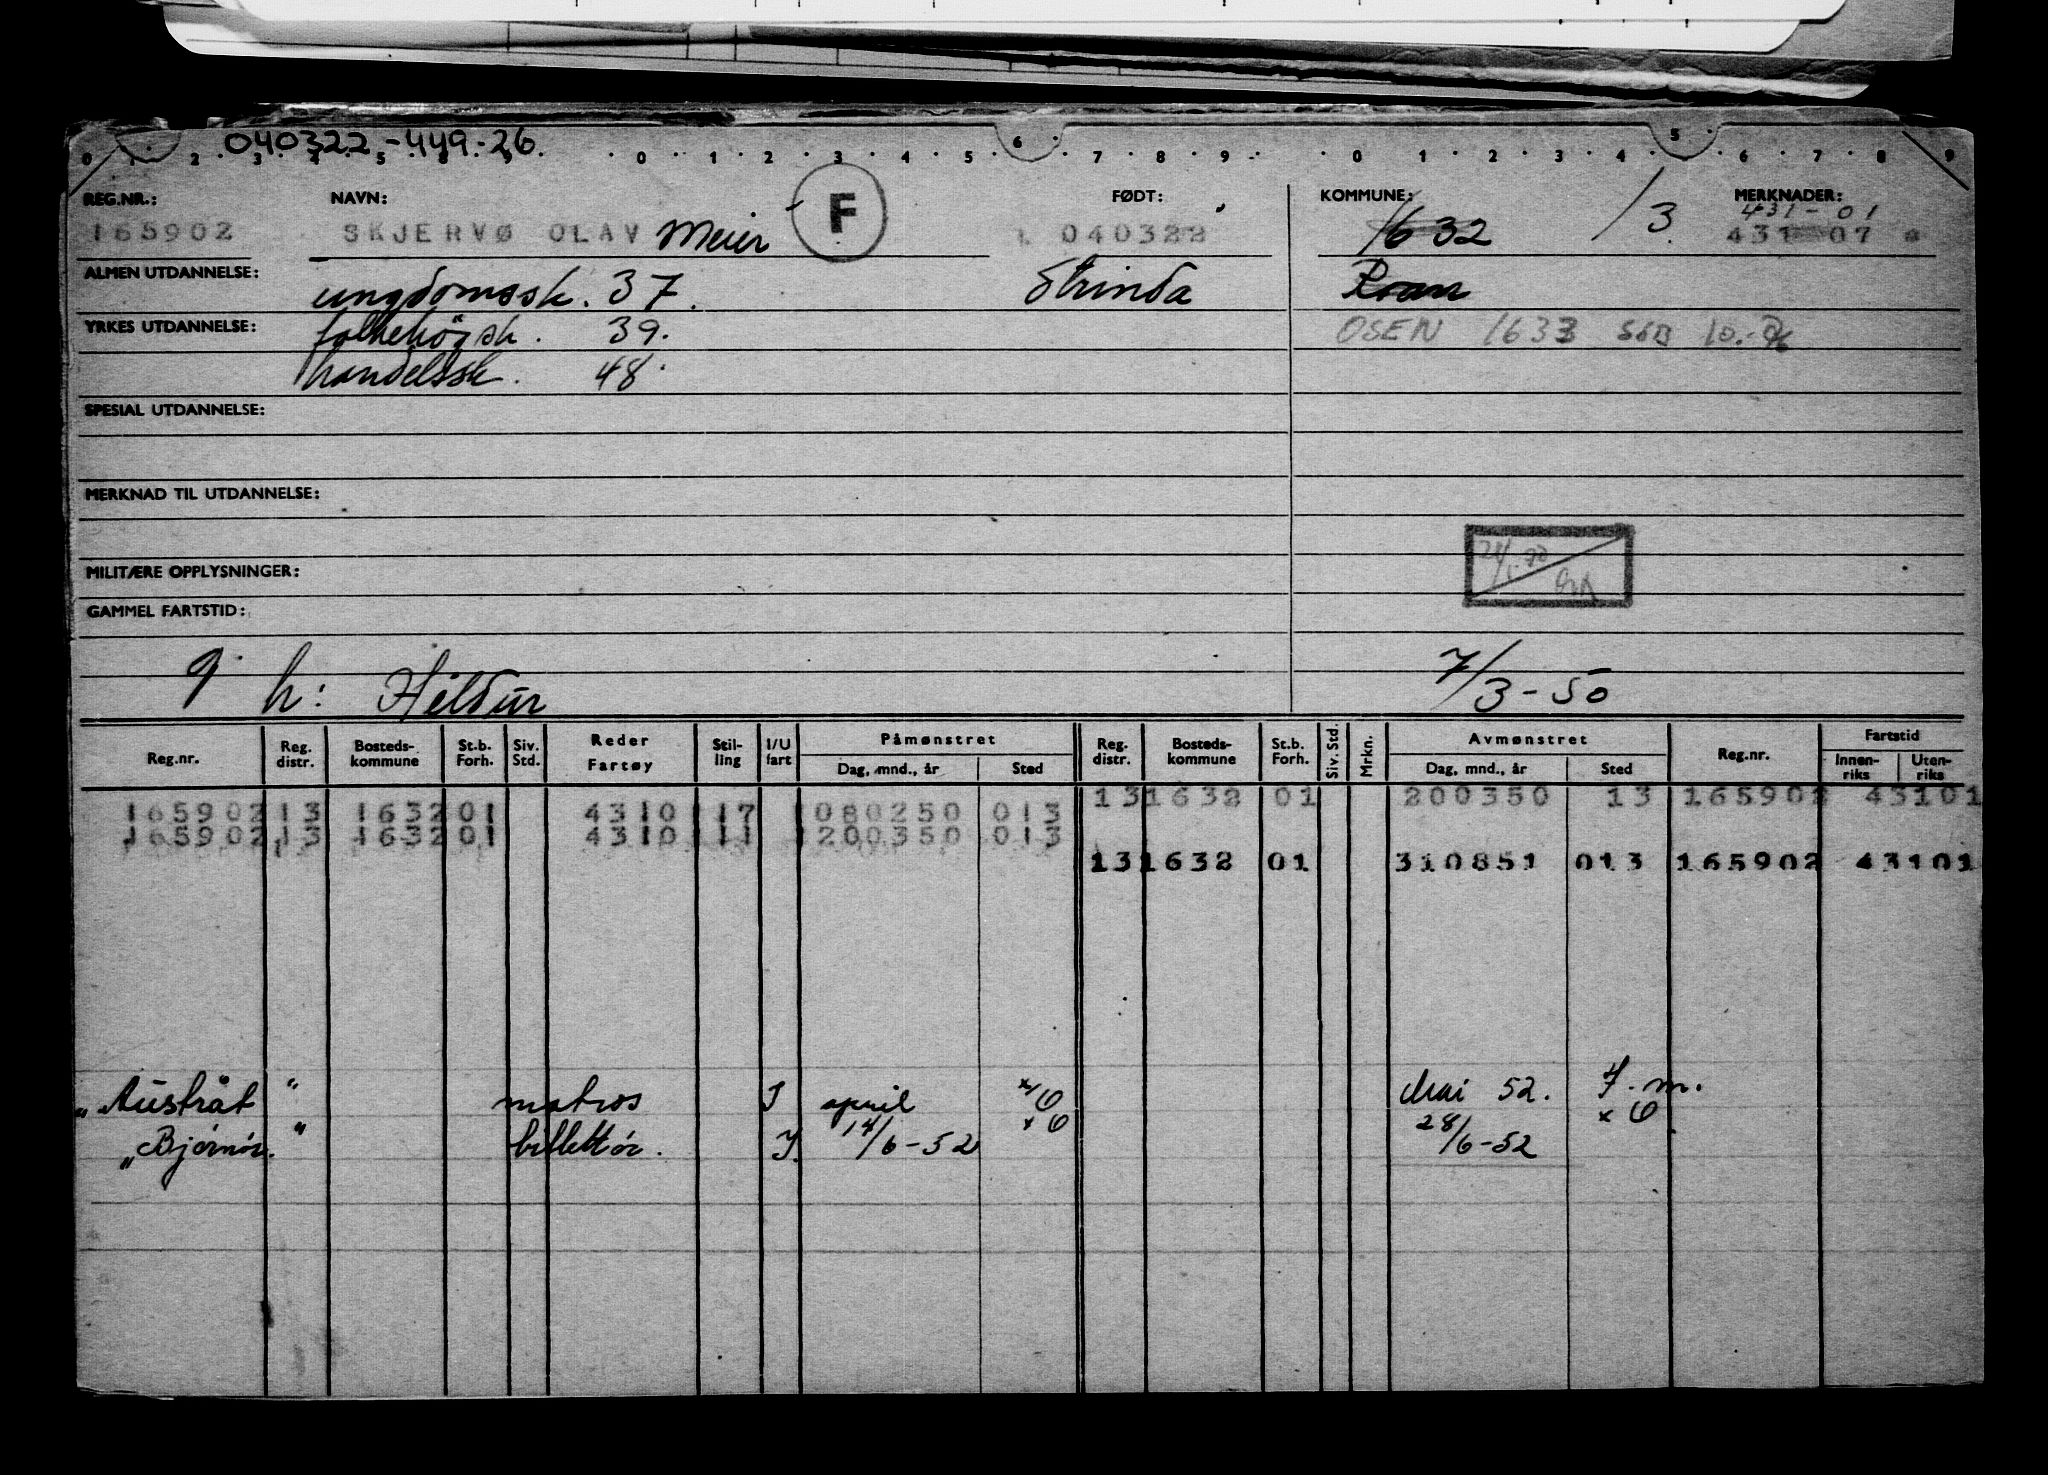 040322-449-26.
0 1 2 3 4 5 0 1 2 3 4 5 6 7 8 9 0 1 2 3 4 5 6 7 8 9
REG.NR.: NAVN: FØDT: KOMMUNE: MERKNADER:
431-01
165902 SKJERVØ OLAV Meier F 040322 1632 13 431 07
ALMEN UTDANNELSE: ungdomssk. 37. Strinda Roan
YRKES UTDANNELSE: folkehögsk. 39. OSEN 1633
handelssk. 48.
SPESIAL UTDANNELSE:
MERKNAD TIL UTDANNELSE:
MILITÆRE OPPLYSNINGER:
GAMMEL FARTSTID:
g. h: Hildur 7/3-50
Reg.nr. Reg. distr. Bosteds-kommune St.b. Forh. Siv. Std. Reder Fartøy Stil-ling I/U fart Påmønstret Dag, mnd., år Sted Reg. distr. Bosteds-kommune St.b. Forh. Siv. Std. Mrkn. Avmønstret Dag, mnd., år Sted Reg.nr. Fartstid Innen-riks Uten-riks
13 1632 01 200350 13 165902 43101
165902 13 1632 01 4310 17 080250 013
165902 13 1632 01 4310 11 200350 013
13 1632 01 310851 013 165902 43101
"Austråt" matros I april x/O Mai 52. f.m.
"Bjørnør." billettör. I. 14/6-52 x O 28/6-52 x O